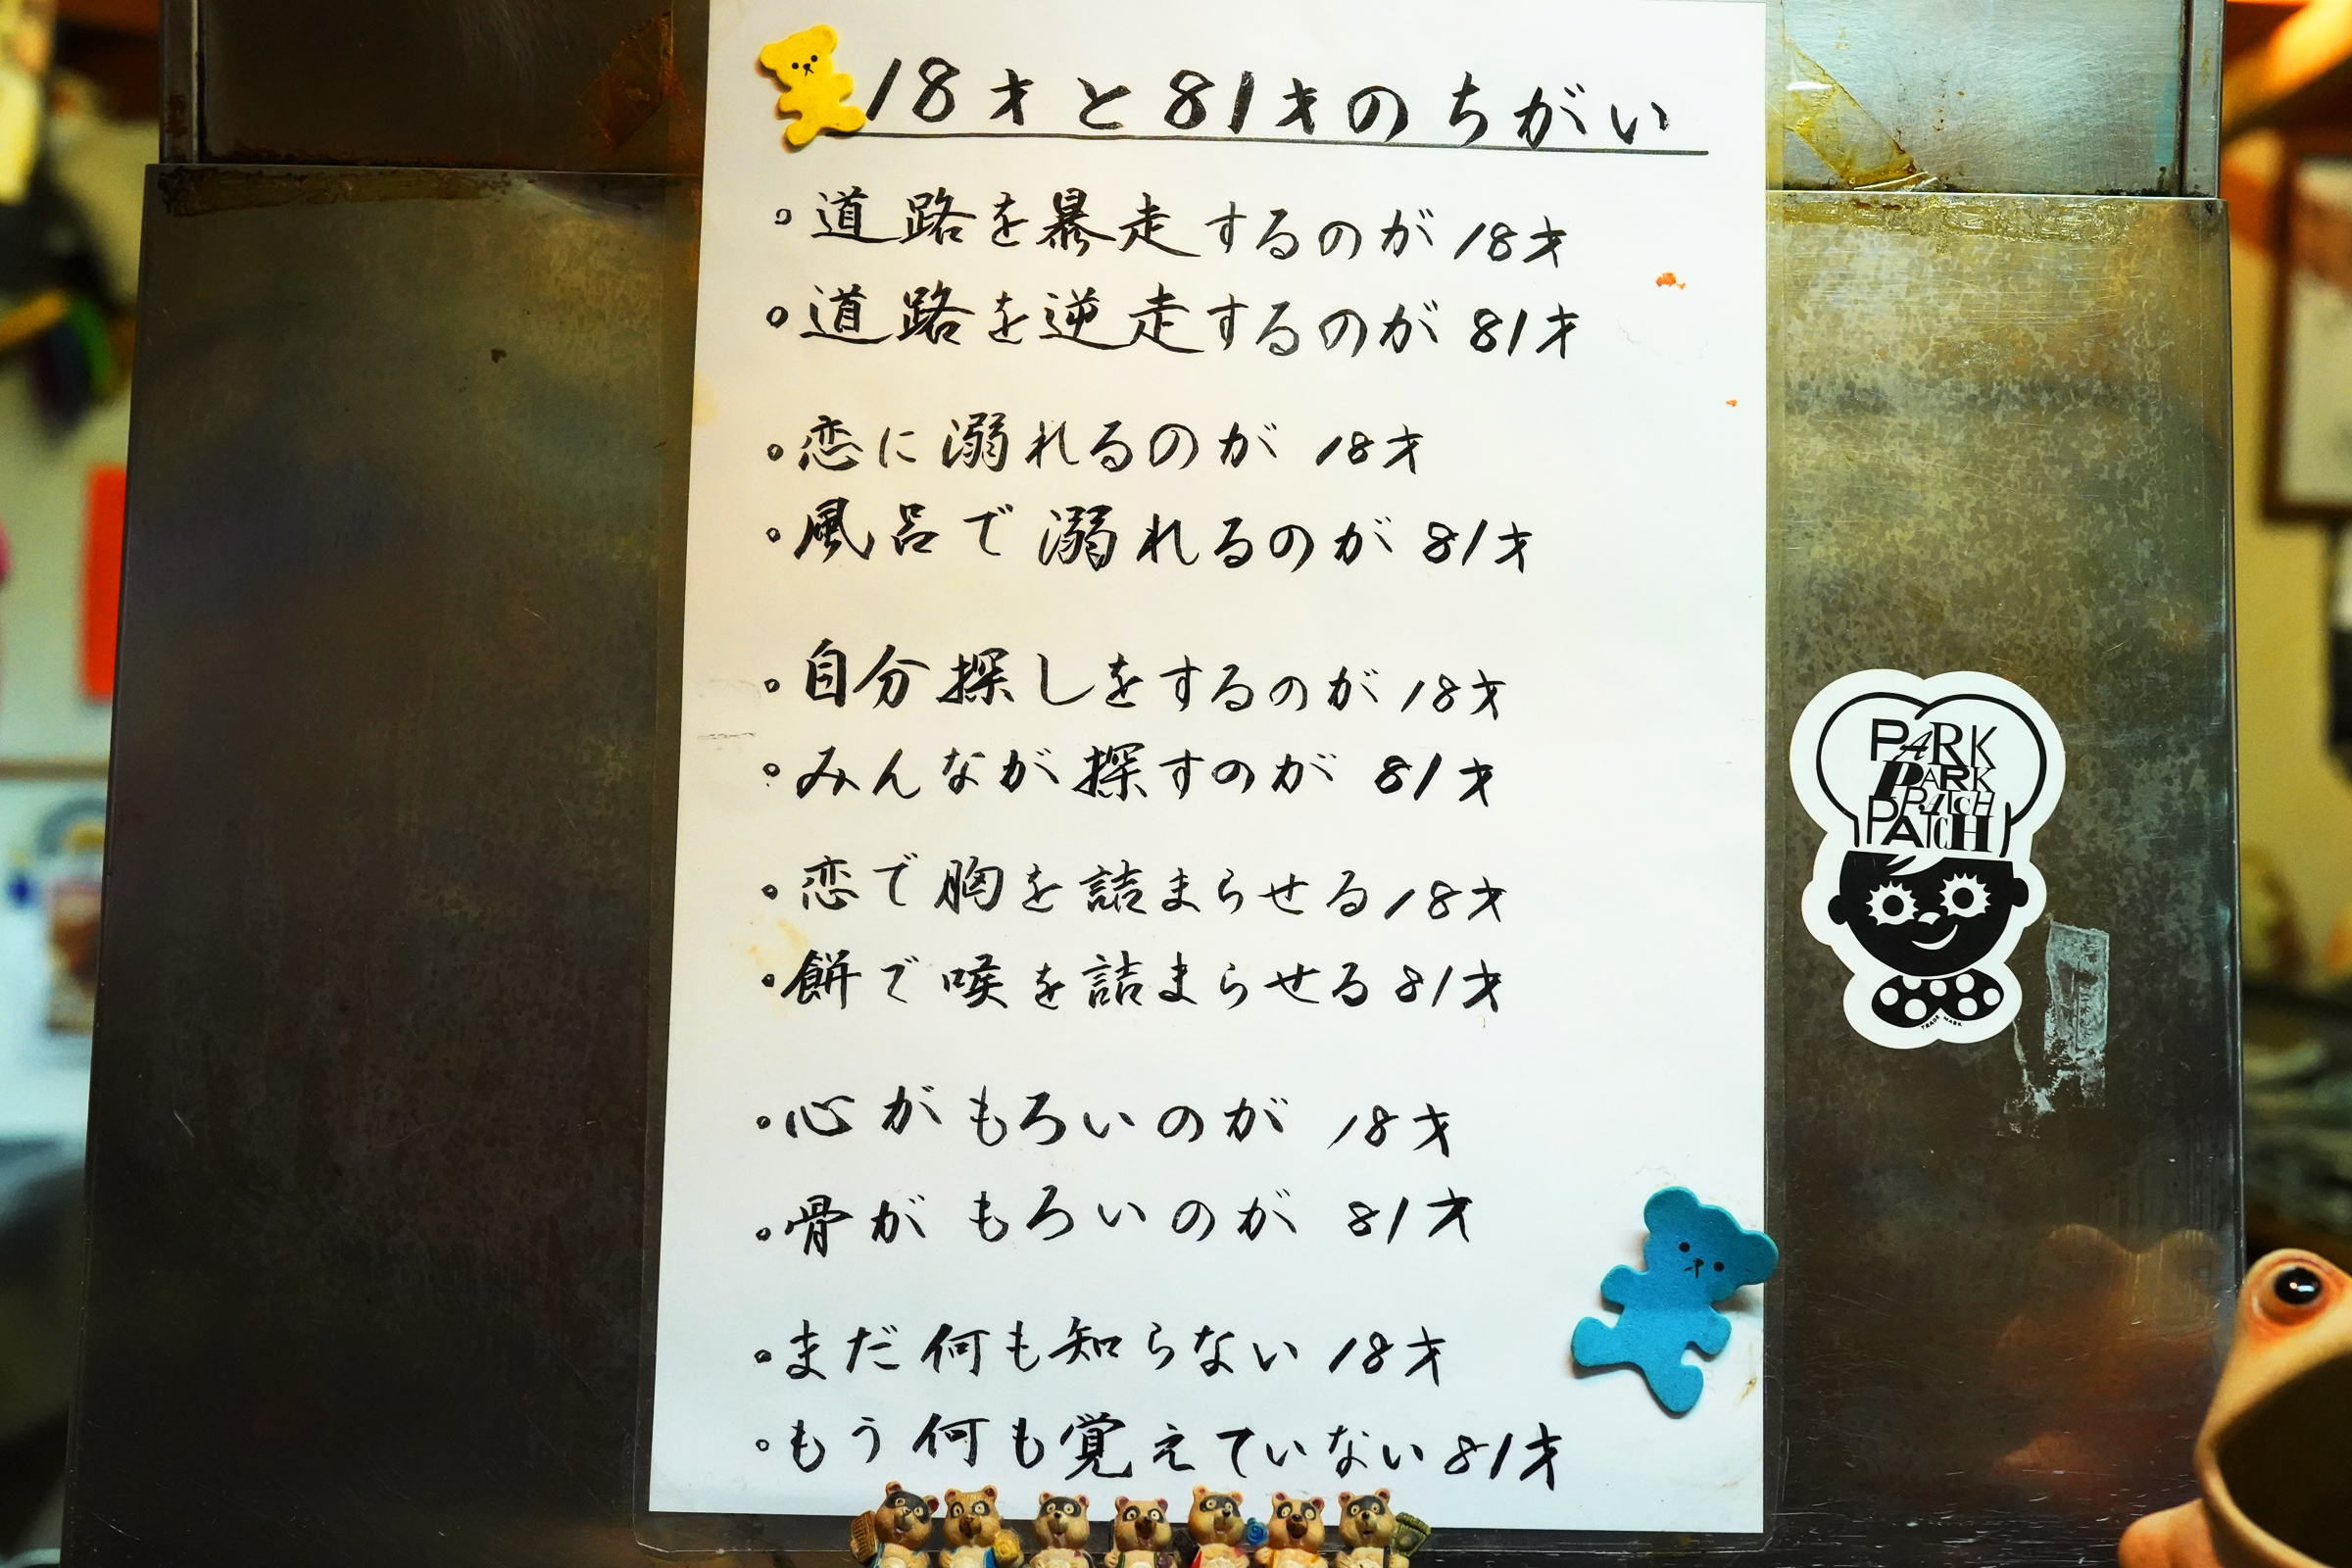 18才と81才のちがい
。道路を暴走するのが18才
。道路を逆走するのが81才
。恋に溺れるのが 18才
。風呂で溺れるのが 81才
。自分探しをするのが18才
。みんなが探すのが 81才
。恋で胸を詰まらせる18才
。餅で喉を詰まらせる81才
。心がもろいのが 18才
。骨がもろいのが 81才
。まだ何も知らない 18才
。もう何も覚えていない81才
PARK
PARK
PATCH
PATCH
TRADE MARK